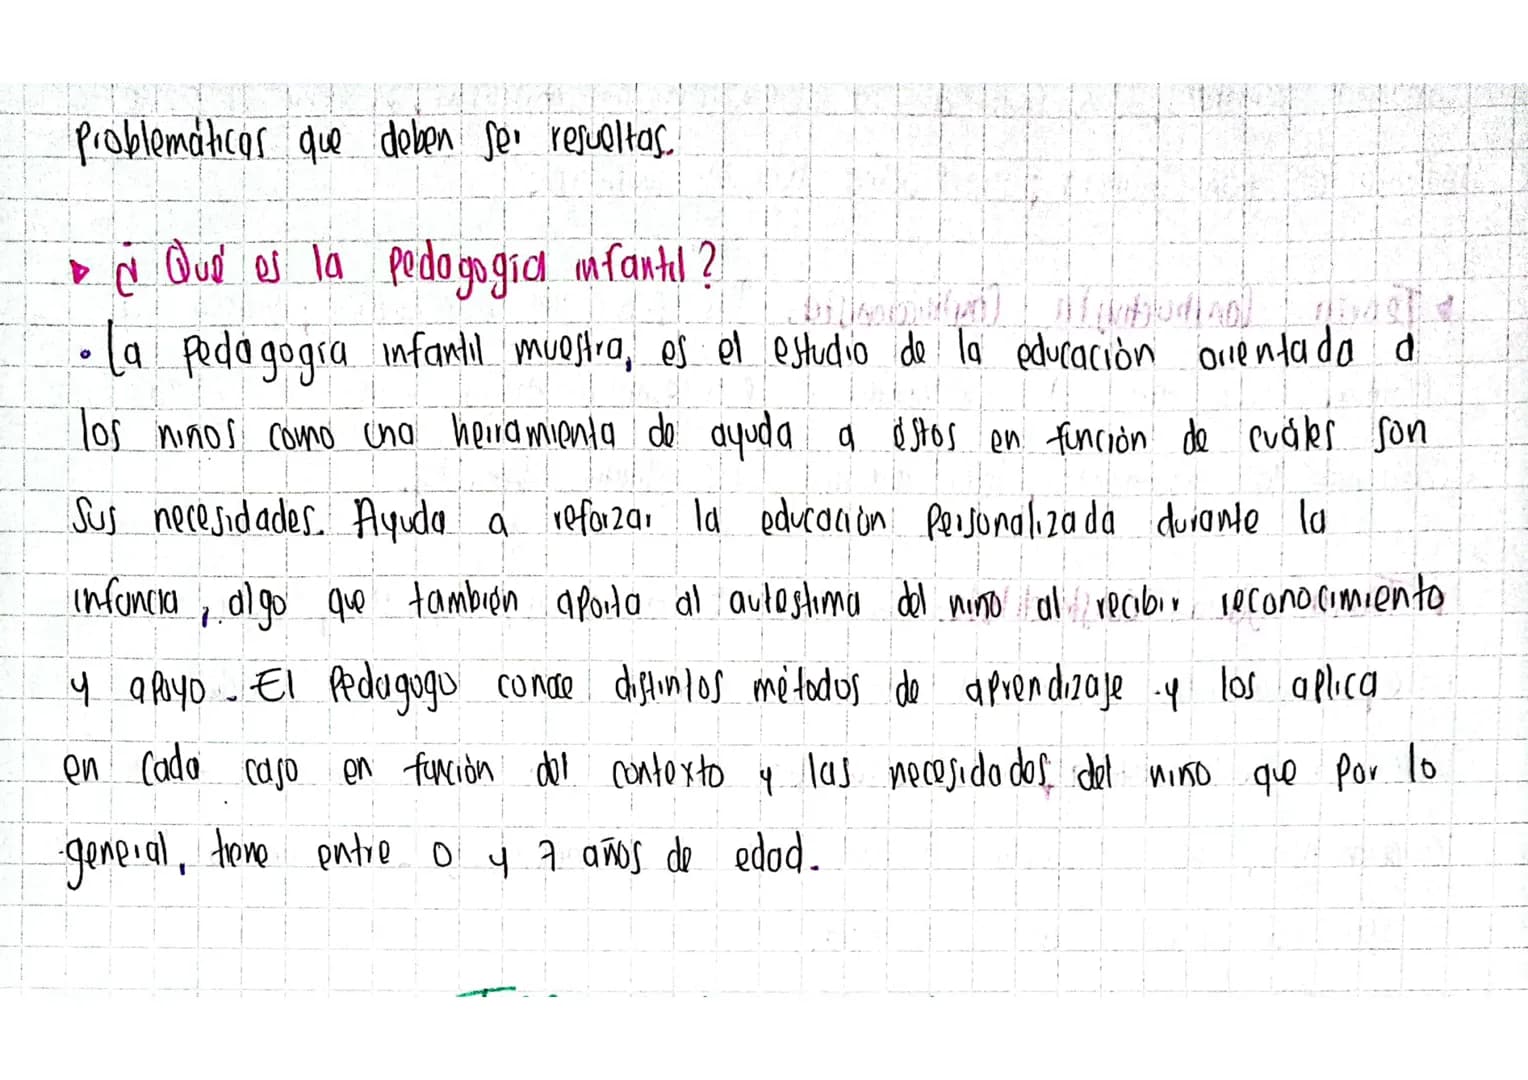 problemáticas que deben ser resueltas.
¿Qué es la pedagogía infantil?
• La pedagogía infantil muestra, es el estudio de la educación orientada a
los niños como una herramienta de ayuda a éstos en función de cuáles son
sus necesidades. Ayuda a reforzar la educación personalizada durante la
infancia, algo que también aporta al autestima del niño al recibir reconocimiento
y apoyo. El pedagogo conoce distintos métodos de aprendizaje y los aplica
en cada caso en función del contexto y las necesidades del niño que por lo
general, tiene entre 0 y 7 años de edad.